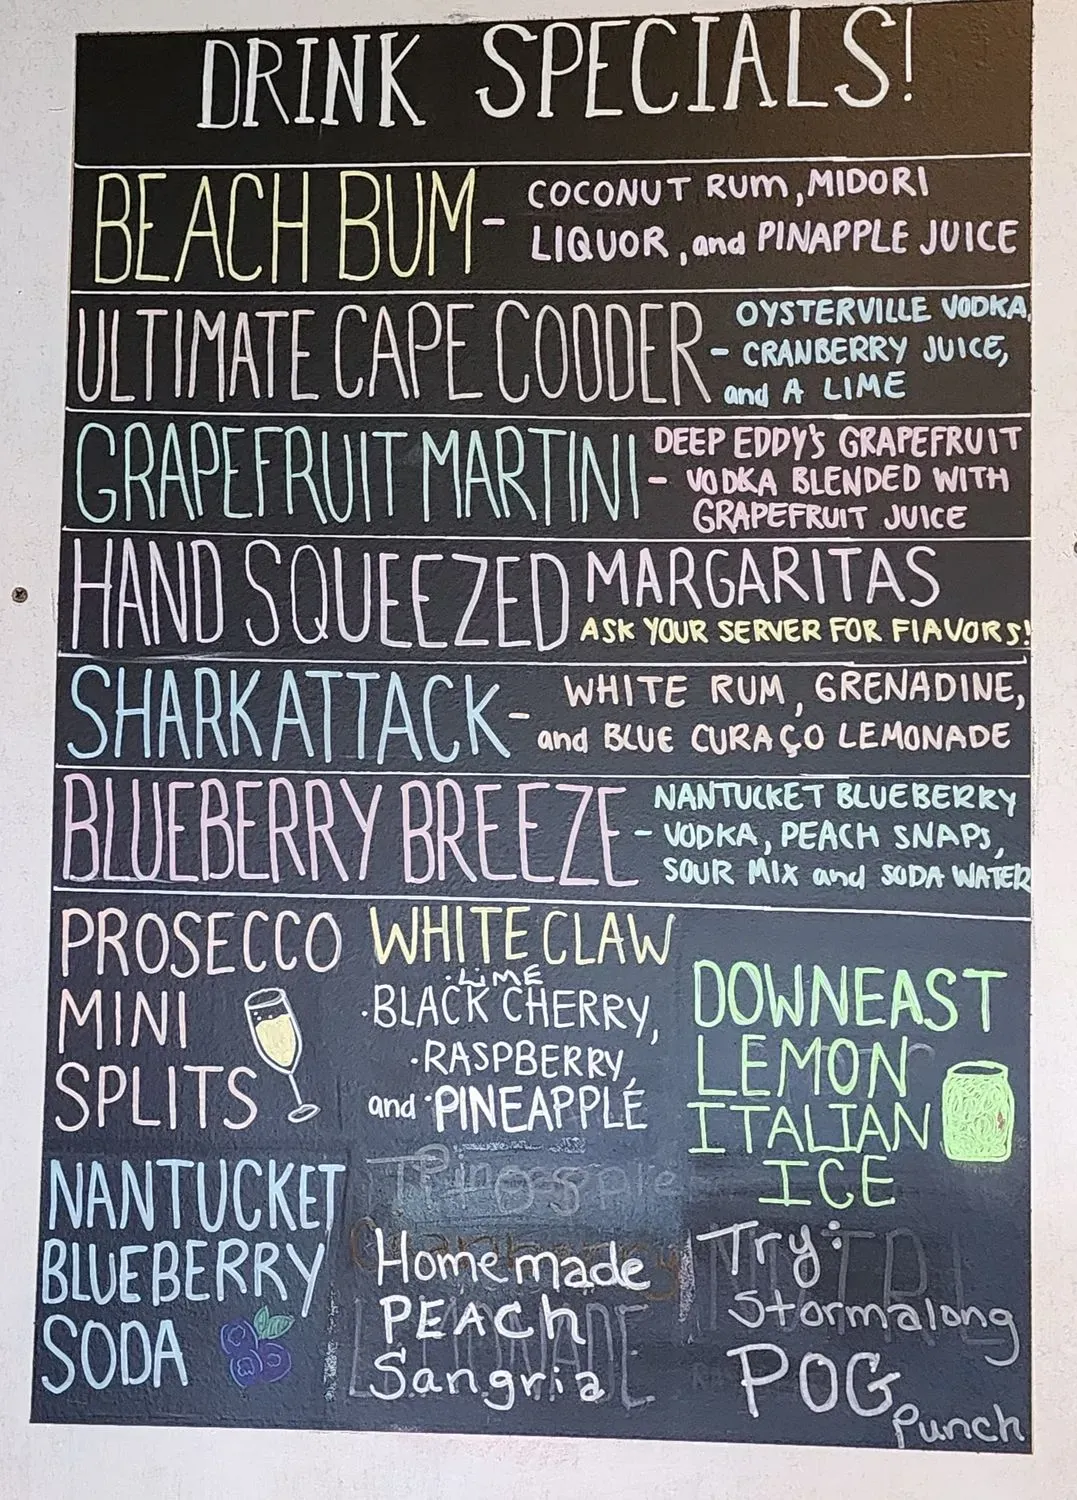 DRINK SPECIALS!
BEACH BUM - COCONUT RUM, MIDORI
LIQUOR, and PINAPPLE JUICE
ULTIMATE CAPE CODDER - OYSTERVILLE VODKA,
CRANBERRY JUICE,
and A LIME
GRAPEFRUIT MARTINI - DEEP EDDY'S GRAPEFRUIT
VODKA BLENDED WITH
GRAPEFRUIT JUICE
HAND SQUEEZED MARGARITAS
ASK YOUR SERVER FOR FlAVORS!
SHARK ATTACK - WHITE RUM, GRENADINE,
and BLUE CURAÇO LEMONADE
BLUEBERRY BREEZE - NANTUCKET BLUEBERRY
VODKA, PEACH SNAPS,
SOUR MIX and SODA WATER
PROSECCO
MINI
SPLITS
WHITE CLAW
·LiME
·BLACK CHERRY,
·RASPBERRY,
and ·PINEAPPLE
DOWNEAST
LEMON
ITALIAN
ICE
NANTUCKET
BLUEBERRY
SODA
Homemade
PEACh
Sangria
Try:
Stormalong
POG
Punch